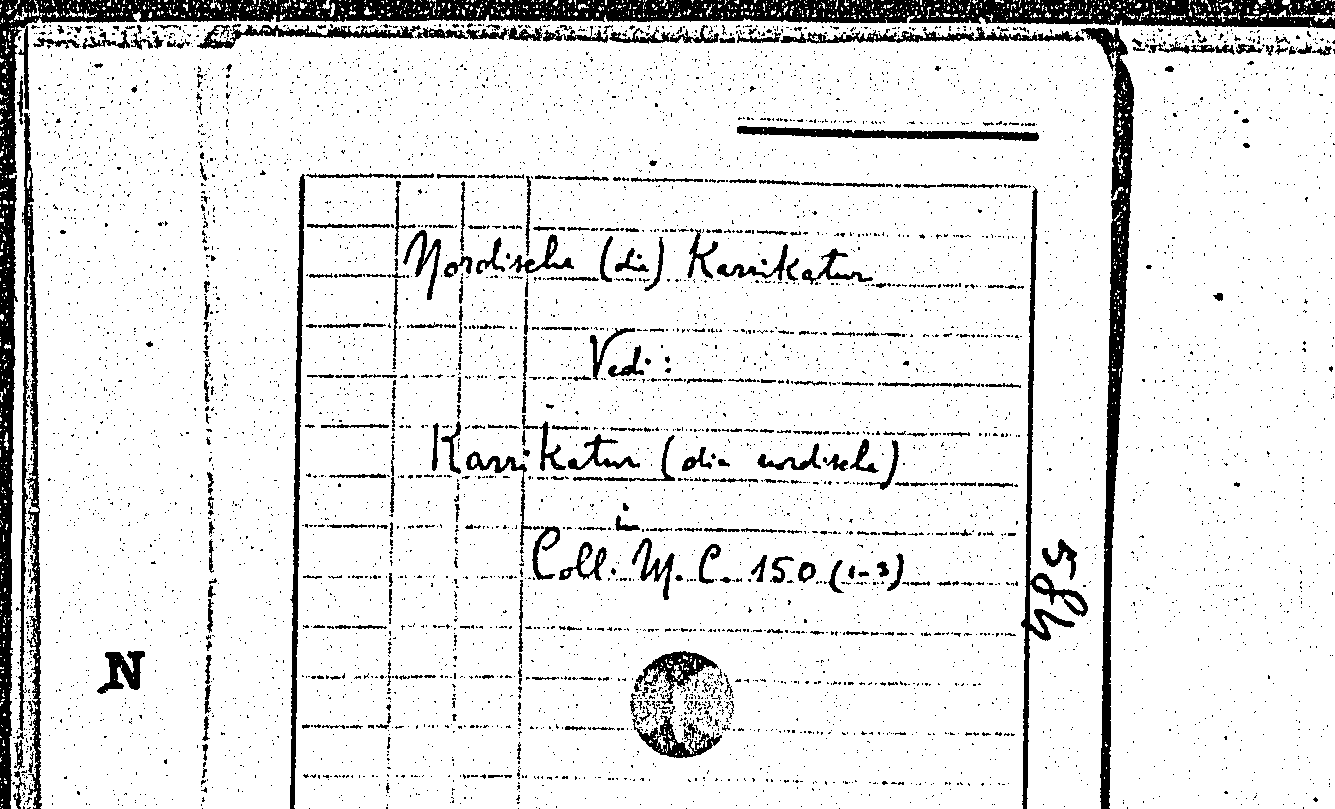 Nordische (die) Karrikatur
Vedi:
Karrikatur (die nordische)
in
Coll. M. C. 150 (1-3)
N